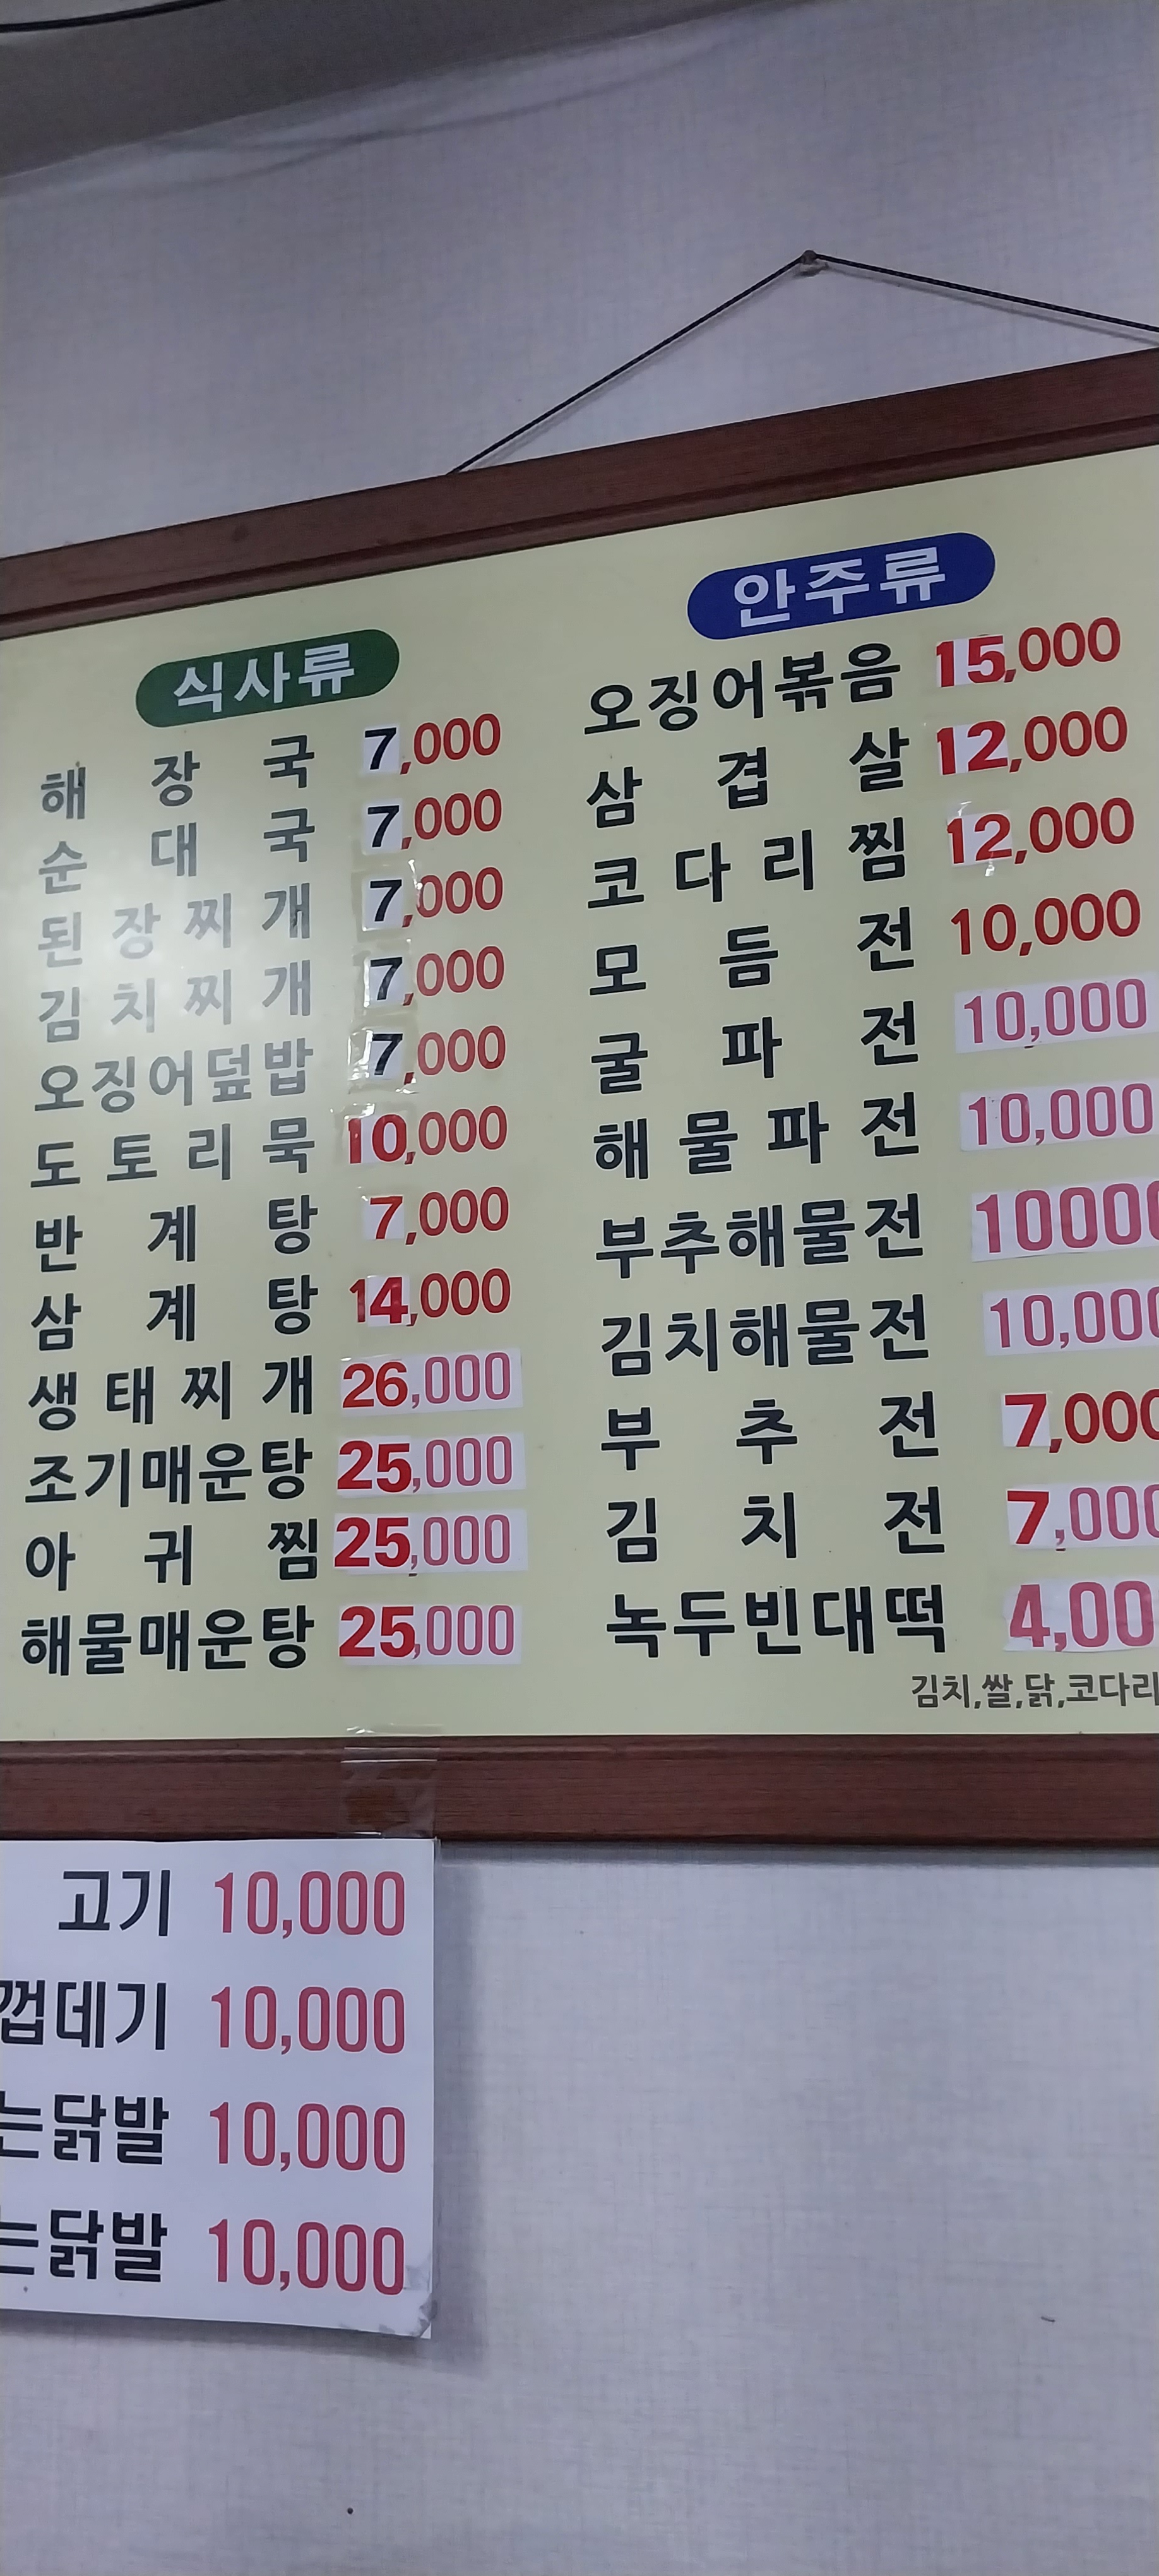 식사류
해장국 7,000
순대국 7,000
된장찌개 7,000
김치찌개 7,000
오징어덮밥 7,000
도토리묵 10,000
반계탕 7,000
삼계탕 14,000
생태찌개 26,000
조기매운탕 25,000
아귀찜 25,000
해물매운탕 25,000
안주류
오징어볶음 15,000
삼겹살 12,000
코다리찜 12,000
모듬전 10,000
굴파전 10,000
해물파전 10,000
부추해물전 10000
김치해물전 10,000
부추전 7,000
김치전 7,000
녹두빈대떡 4,00
김치,쌀,닭,코다리
고기 10,000
껍데기 10,000
는닭발 10,000
는닭발 10,000